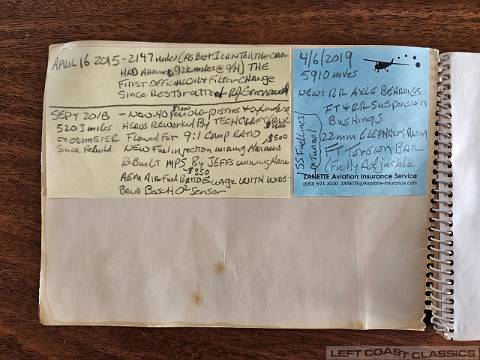 APRIL 16 2015 - 2147 miles (AS Best I CAN Tell the CAR
HAD Around 92K miles @ 9/4) THE
First Official Oil & Filter Change
Since Restoration
SEPT 2018 - New 40 Pistons & Cylinders $1000
5203 miles Heads Reworked By TECHCRAFT $1600
on ODOMETER Flowed For 9:1 Comp RATIO $500
Since Rebuild - New Fuel injection wiring Harness
Rebuilt MPS By JEFFS wiring
~$350
AEM Air Fuel RATIO GAUGE WITH WIDE
BAND Bosch O2 Sensor
4/6/2019
5910 miles
NEW: RR AXLE BEARINGS
FT & RR Suspension
Bushings
22mm ELEPHANT Racing
FT Torsion BAR
(Fully Adjustable
SS Fuel Lines
in Tunnel
ZANETTE Aviation Insurance Service
ZANETTE@Airplane-Insurance.com
LEFT COAST CLASSICS